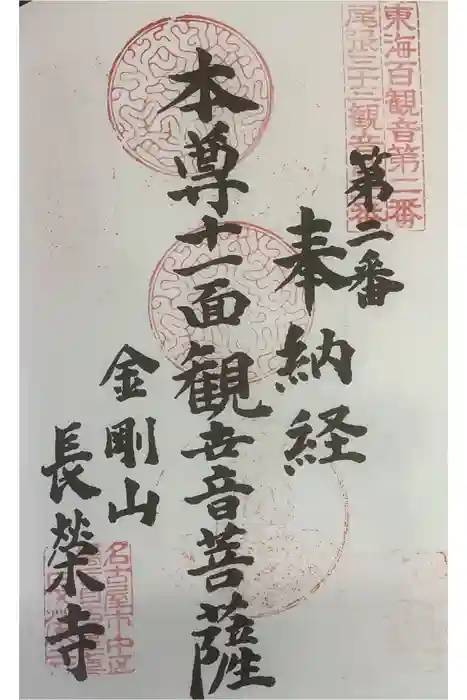 東海百観音第二番
尾張三十三観音
第二番
奉納経
本尊十一面観世音菩薩
金剛山
長榮寺
名古屋市中区